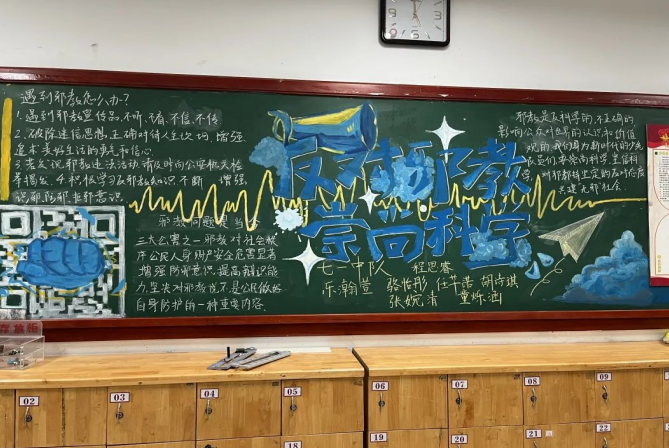 遇到邪教怎么办?
1.遇到邪教宣传品,不听、不看、不信、不传
2.破除迷信思想,正确对待人生坎坷,增强
追求美好生活的勇气和信心.
3.若发现邪教违法活动,请及时向公安机关检
举揭发.4.积极学习反邪教知识,不断 增强
识邪 防邪 拒邪意识.
邪教问题是当今
三大公害之一邪教对社会秩
序公民人身财产安全危害显著
增强防邪意识,提高辨识能
力,坚决对邪教说不是公民做好
自身防护的一种重要内容.
反对邪教
崇尚科学
七一中队 程思睿
乐瀚萱 骆怡彤 任芊诺 胡诗琪
张婉清 董烁涵
邪教是反科学的,不正确的
影响公众对世界的认识和价值
观的,我们身为新时代的少先
队员们,要崇尚科学,坚信科
学,对邪教持坚定的反对态度
共建无邪社会.
存放柜
02
03
04
05
06
07
08
09
18
19
20
21
22